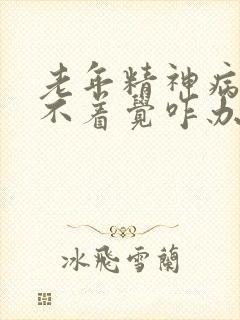 老年精神病
不着覺咋办
冰飛雪蘭